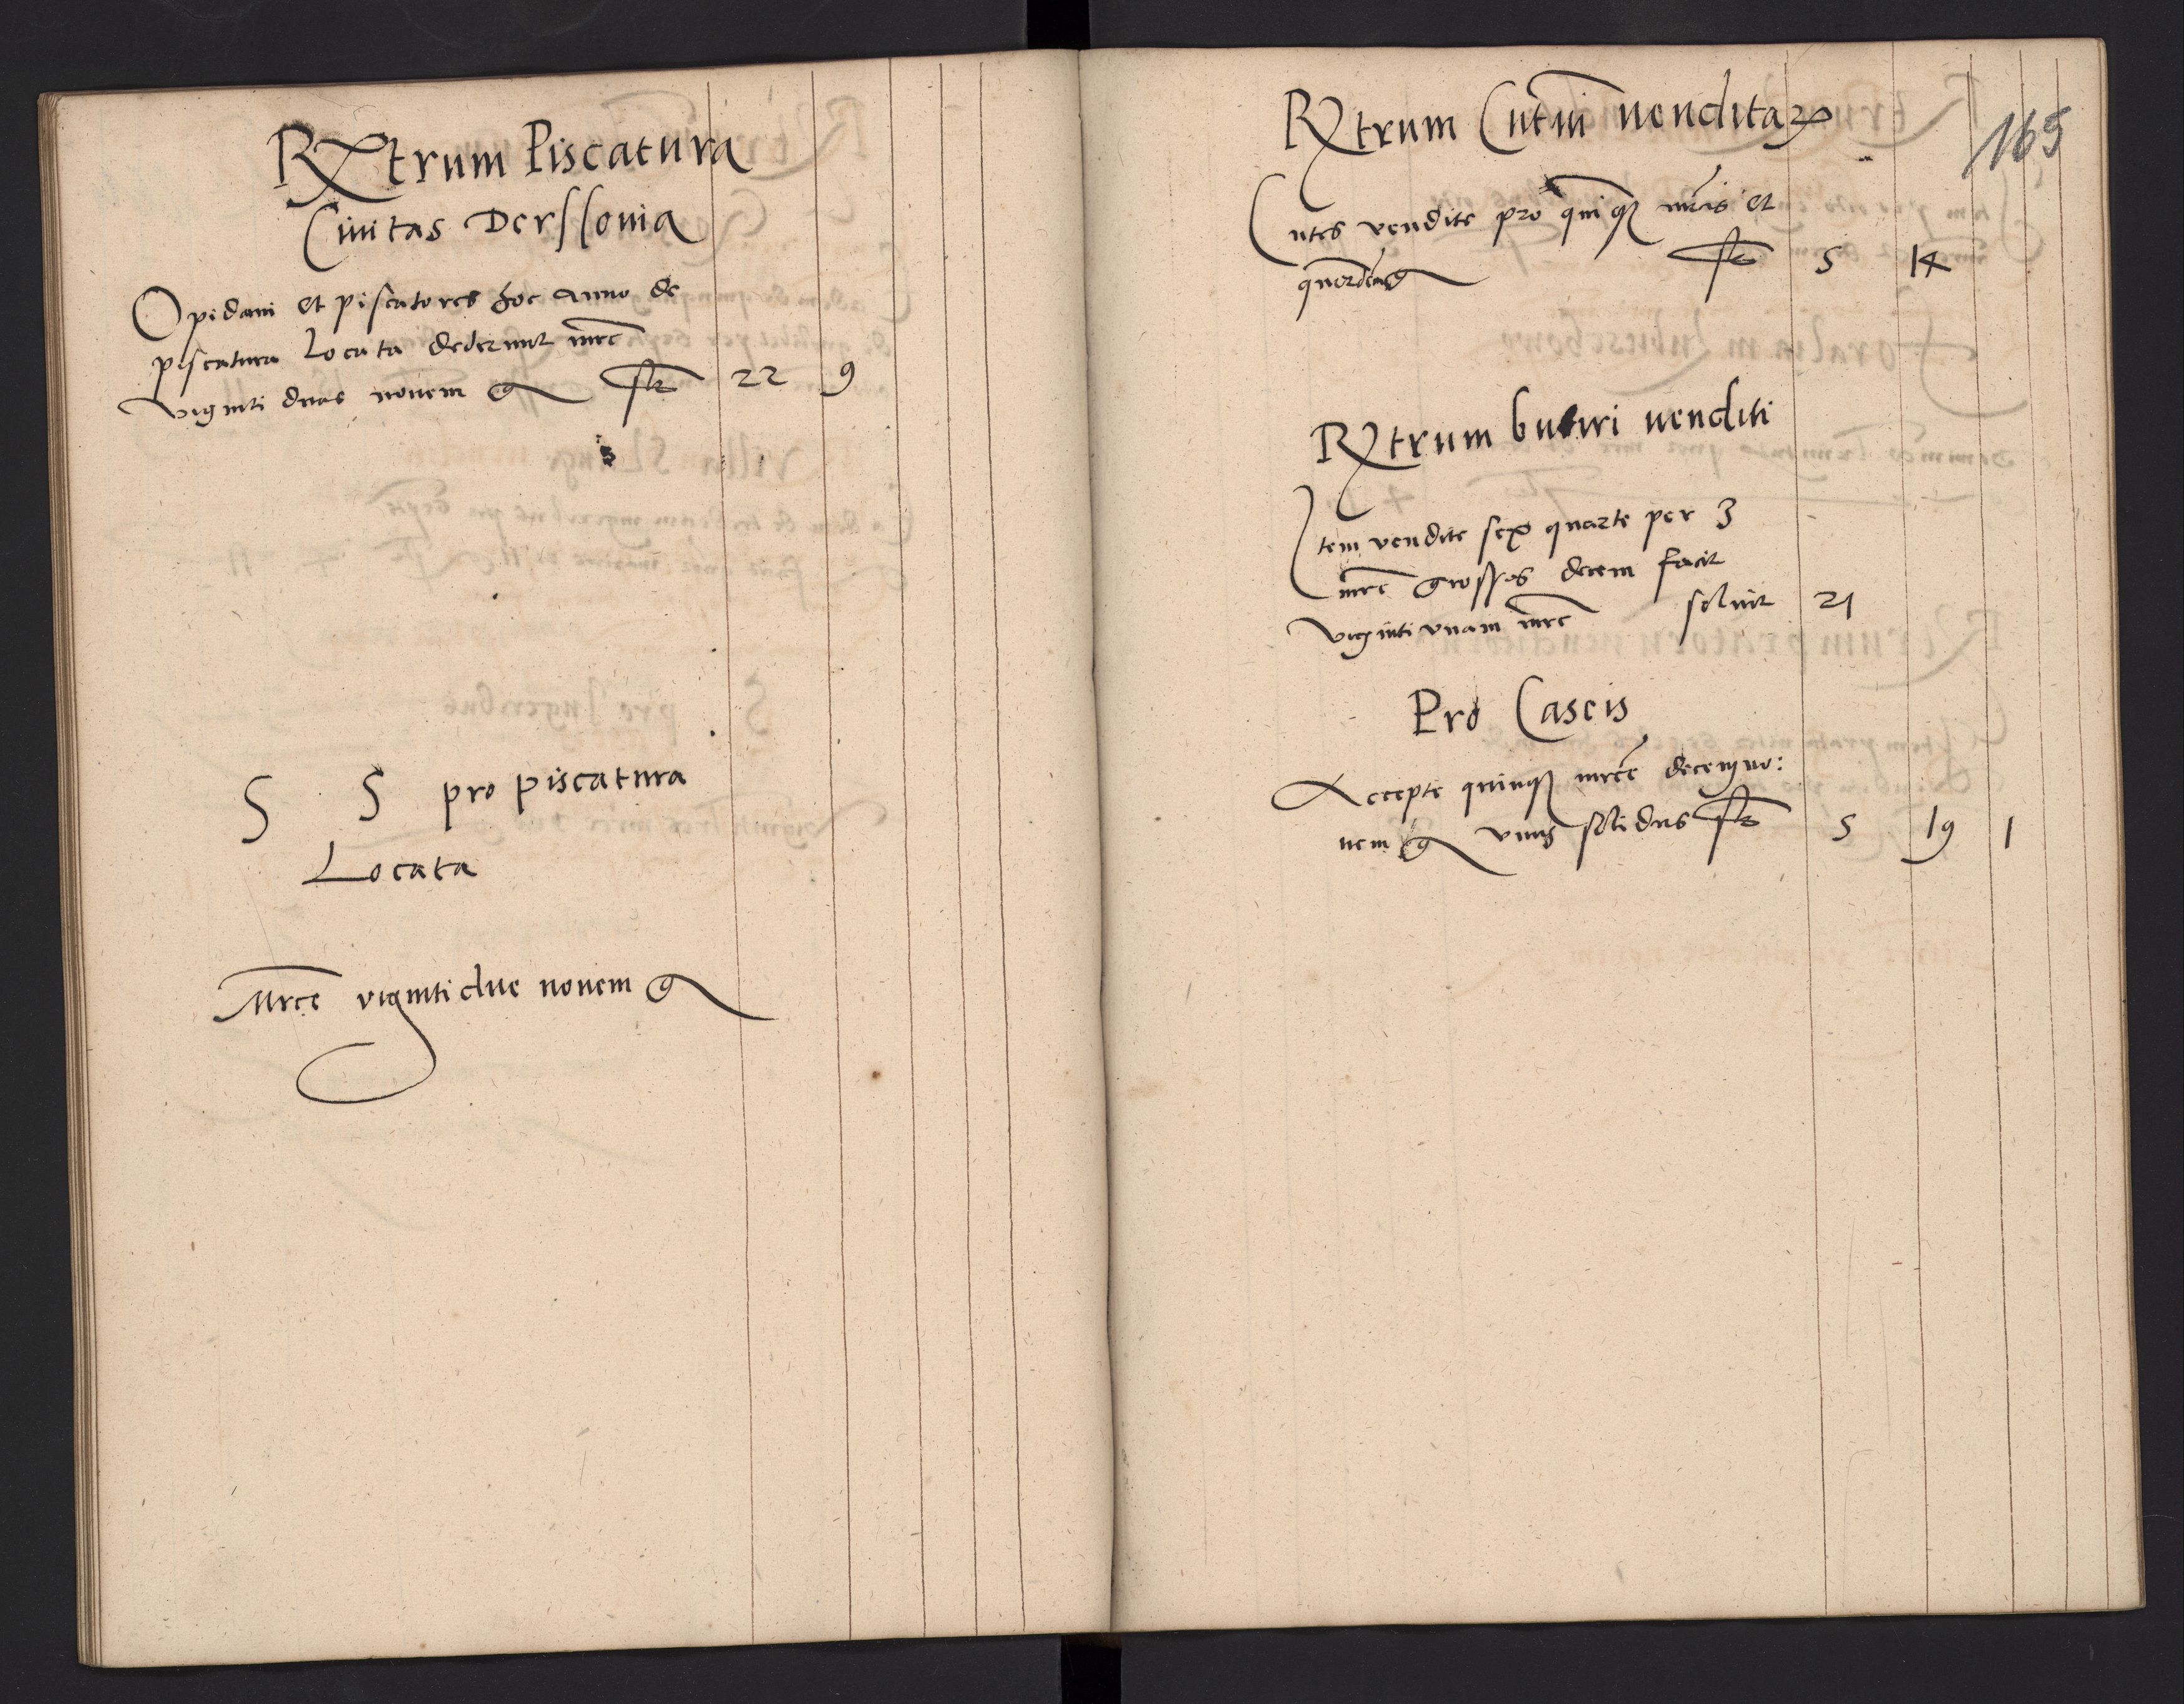 Rtrum Piscatura
Civitas Derssovia
Opidani et piscatores hoc anno de
piscatura Locata dederunt mrc
viginti duas novem g ft 22 9
S S pro piscatura
Locata
Mrce viginti due novem g
165
Rtrum Cutiu venditar
Cutes vendite pro quinq mrcis et
quatuordecim g ft 5 14
Rtrum butiri venditi
Item vendite sex quarte per 3
mrc grossos decem facit
viginti unam mrc solvit 21
Pro Caseis
Accepte quinq mrce decem no:
nem g unus solidus ft 5 19 1